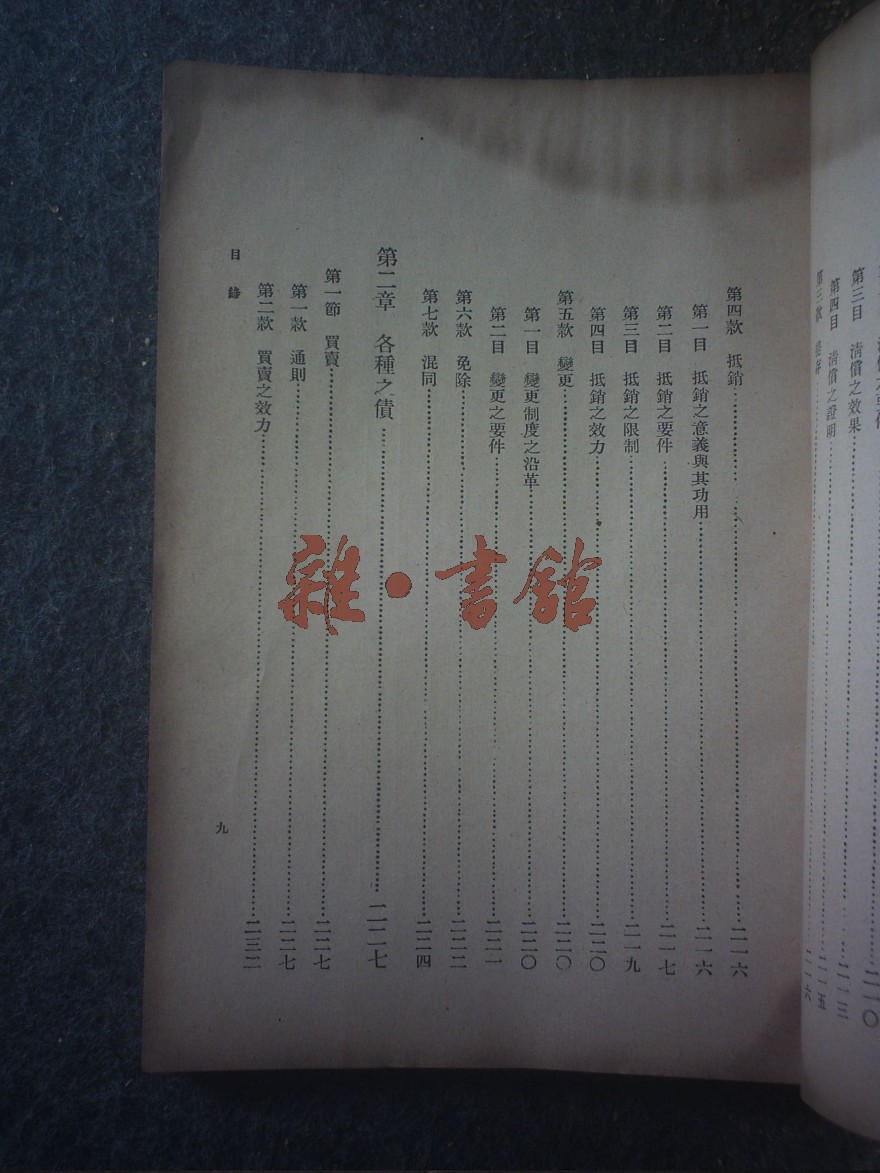 第三目 清償之效果……二一三
第四目 清償之證明……二一五
第三款 提存……二一六
第四款 抵銷……二一六
第一目 抵銷之意義與其功用……二一六
第二目 抵銷之要件……二一七
第三目 抵銷之限制……二一九
第四目 抵銷之效力……二二〇
第五款 變更……二二〇
第一目 變更制度之沿革……二二〇
第二目 變更之要件……二二一
第六款 免除……二二二
第七款 混同……二二四
第二章 各種之債……二二七
第一節 買賣……二二七
第一款 通則……二二七
第二款 買賣之效力……二三二
目錄
九
雜·書館